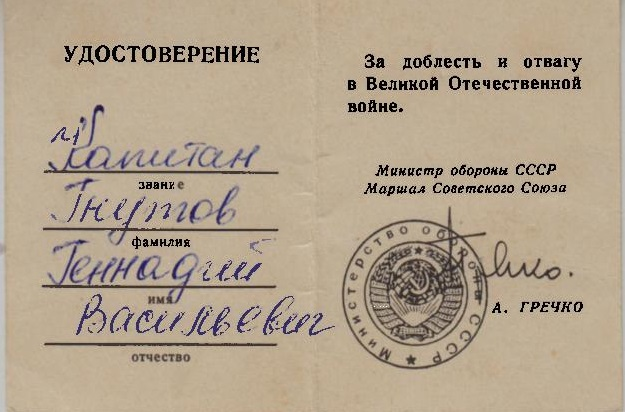 УДОСТОВЕРЕНИЕ
Капитан
звание
Гнутов
фамилия
Геннадий
имя
Васильевич
отчество
За доблесть и отвагу
в Великой Отечественной
войне.
Министр обороны СССР
Маршал Советского Союза
Министерство обороны СССР
А. ГРЕЧКО